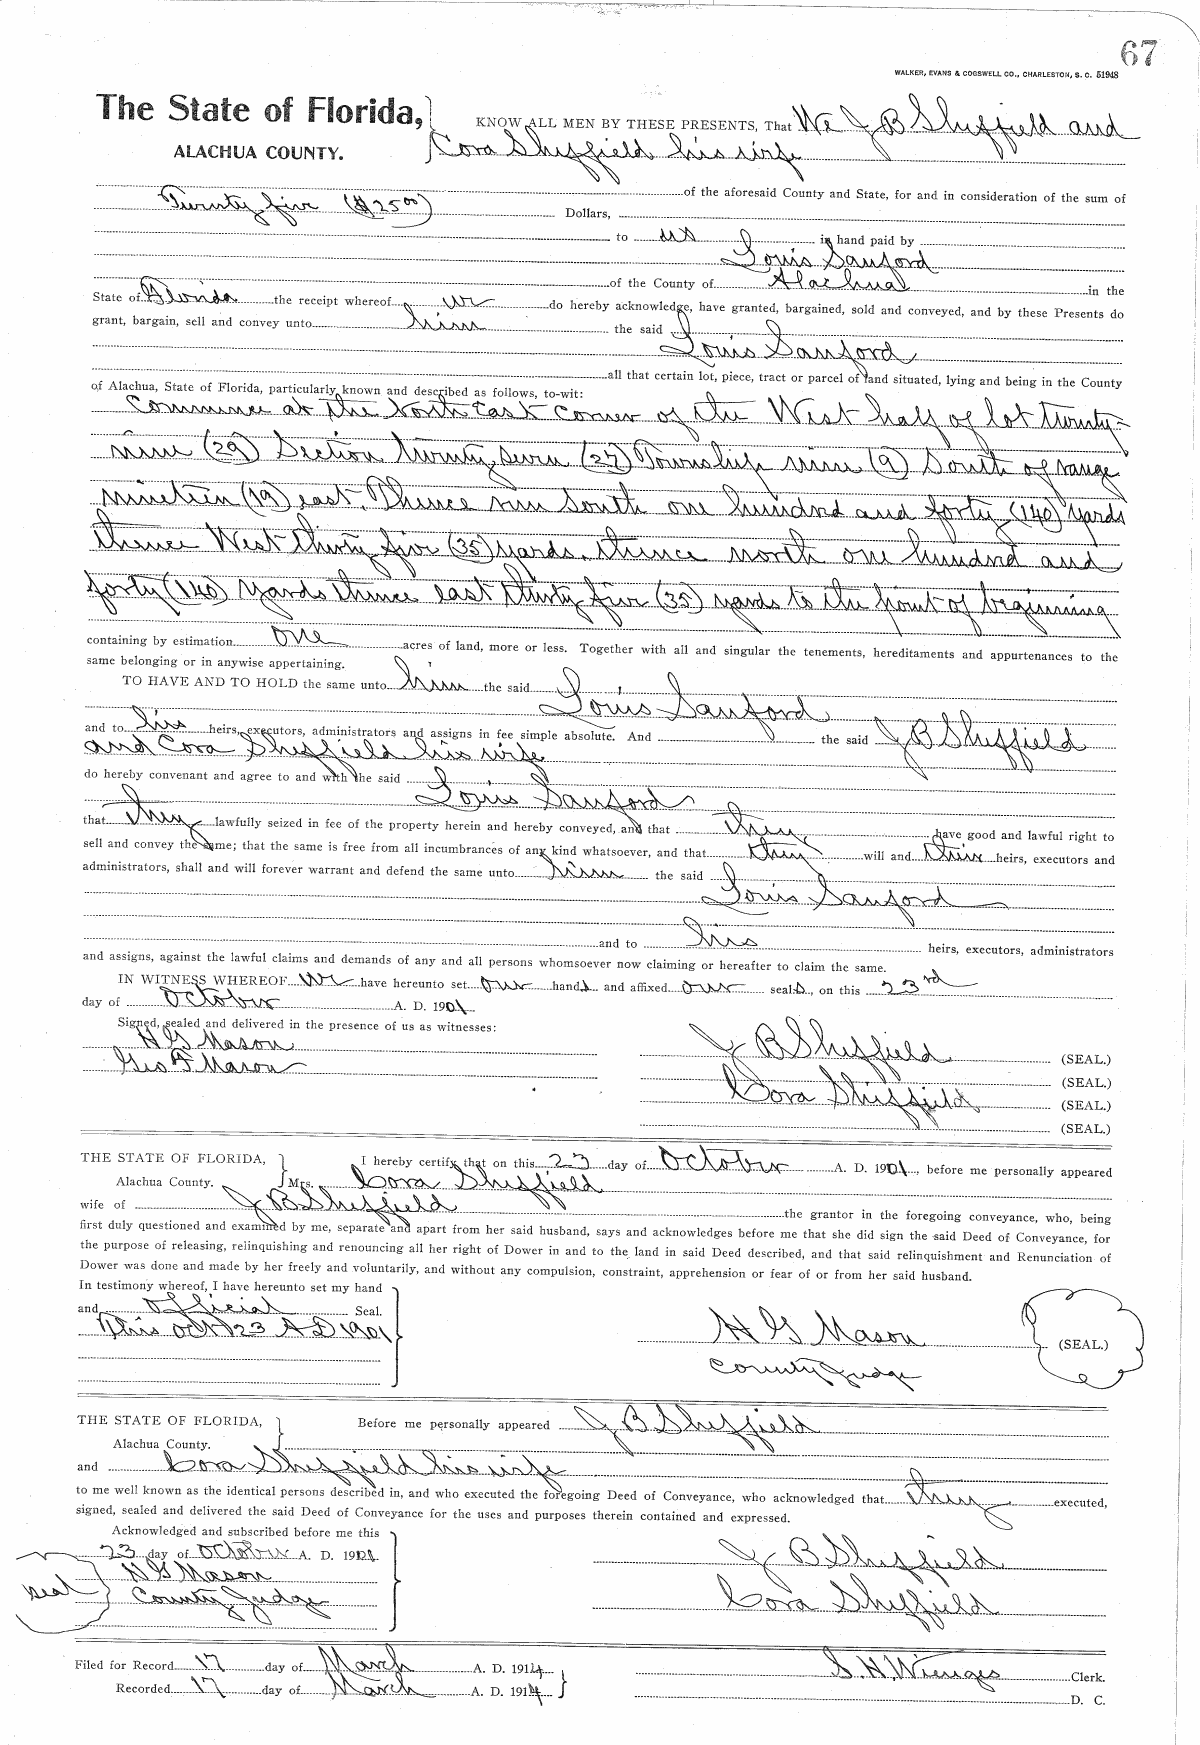 67
WALKER, EVANS & COGSWELL CO., CHARLESTON, S. C. 51948
The State of Florida,
ALACHUA COUNTY.
KNOW ALL MEN BY THESE PRESENTS, That We J B Sheffield and
Cora Sheffield his wife
of the aforesaid County and State, for and in consideration of the sum of
Twenty five ($25 00) Dollars,
to us in hand paid by
Louis Sanford
of the County of Alachua in the
State of Florida the receipt whereof we do hereby acknowledge, have granted, bargained, sold and conveyed, and by these Presents do
grant, bargain, sell and convey unto him the said
Louis Sanford
all that certain lot, piece, tract or parcel of land situated, lying and being in the County
of Alachua, State of Florida, particularly known and described as follows, to-wit:
Commence at the North East corner of the West half of lot twenty-
nine (29) Section twenty seven (27) Township nine (9) South of range
nineteen (19) east. Thence run South one hundred and forty (140) yards
thence West thirty five (35) yards. thence north one hundred and
forty (140) yards thence east thirty five (35) yards to the point of beginning
containing by estimation one acres of land, more or less. Together with all and singular the tenements, hereditaments and appurtenances to the
same belonging or in anywise appertaining.
TO HAVE AND TO HOLD the same unto him the said
Louis Sanford
and to his heirs, executors, administrators and assigns in fee simple absolute. And the said J B Sheffield
and Cora Sheffield his wife
do hereby convenant and agree to and with the said
Louis Sanford
that they lawfully seized in fee of the property herein and hereby conveyed, and that they have good and lawful right to
sell and convey the same; that the same is free from all incumbrances of any kind whatsoever, and that they will and their heirs, executors and
administrators, shall and will forever warrant and defend the same unto him the said
Louis Sanford
and to his heirs, executors, administrators
and assigns, against the lawful claims and demands of any and all persons whomsoever now claiming or hereafter to claim the same.
IN WITNESS WHEREOF We have hereunto set our hands and affixed our seals, on this 23rd
day of October A. D. 1901
Signed, sealed and delivered in the presence of us as witnesses:
H G Mason
Geo F Mason
J B Sheffield (SEAL.)
(SEAL.)
Cora Sheffield (SEAL.)
(SEAL.)
THE STATE OF FLORIDA,
Alachua County.
I hereby certify that on this 23 day of October A. D. 1901, before me personally appeared
Mrs. Cora Sheffield
wife of J B Sheffield the grantor in the foregoing conveyance, who, being
first duly questioned and examined by me, separate and apart from her said husband, says and acknowledges before me that she did sign the said Deed of Conveyance, for
the purpose of releasing, relinquishing and renouncing all her right of Dower in and to the land in said Deed described, and that said relinquishment and Renunciation of
Dower was done and made by her freely and voluntarily, and without any compulsion, constraint, apprehension or fear of or from her said husband.
In testimony whereof, I have hereunto set my hand
and official Seal.
This Oct 23 A D 1901
H G Mason
County Judge
(SEAL.)
THE STATE OF FLORIDA,
Alachua County.
Before me personally appeared J B Sheffield
and Cora Sheffield his wife
to me well known as the identical persons described in, and who executed the foregoing Deed of Conveyance, who acknowledged that they executed,
signed, sealed and delivered the said Deed of Conveyance for the uses and purposes therein contained and expressed.
Acknowledged and subscribed before me this
23 day of October A. D. 1901
H G Mason
County Judge
seal
J B Sheffield
Cora Sheffield
Filed for Record 17 day of March A. D. 1914
Recorded 17 day of March A. D. 1914
S. H. Wienges Clerk.
D. C.